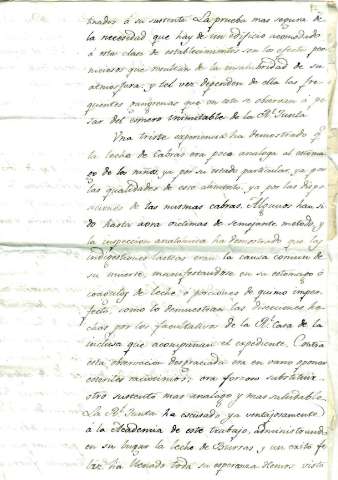 tinados á su sustento. La prueba mas segura de
la necesidad que hay de un edificio acomodado
á esta clase de establecimientos son los efectos per
niciosos que resultan de la insalubridad de su
atmosfera; y tal vez dependen de ella las fre
quentes gangrenas que en este se observan á pe
sar del esmero inimitable de la Rl. Junta.
Una triste experiencia ha demostrado q.
la leche de Cabras era poco analoga al estoma
go de los niños, ya por su estado particular, ya por
las qualidades de este alimento, ya por las dispo
siciones de las mismas cabras. Algunos han si
do hasta aora victimas de semejante metodo, y
la inspeccion anatomica ha demostrado que las
indigestiones lacteas eran la causa comun de
su muerte, manifestandose en su estomago ó
coagulos de leche ó porciones de quimo imper
fecto, como lo demuestran las disecciones he
chas por los facultativos de la Rl. Casa de la
inclusa que acompañan el expediente. Contra
esta observacion desgraciada era en vano oponer
esteriles raciocinios; era forzoso substituir
otro sustento mas analogo y mas saludable.
La Rl. Junta ha escusado ya ventajosamente
á la Academia de este trabajo, administrando
en su lugar la leche de Burras, y un exito fe
liz ha llenado toda su esperanza. Hemos visto